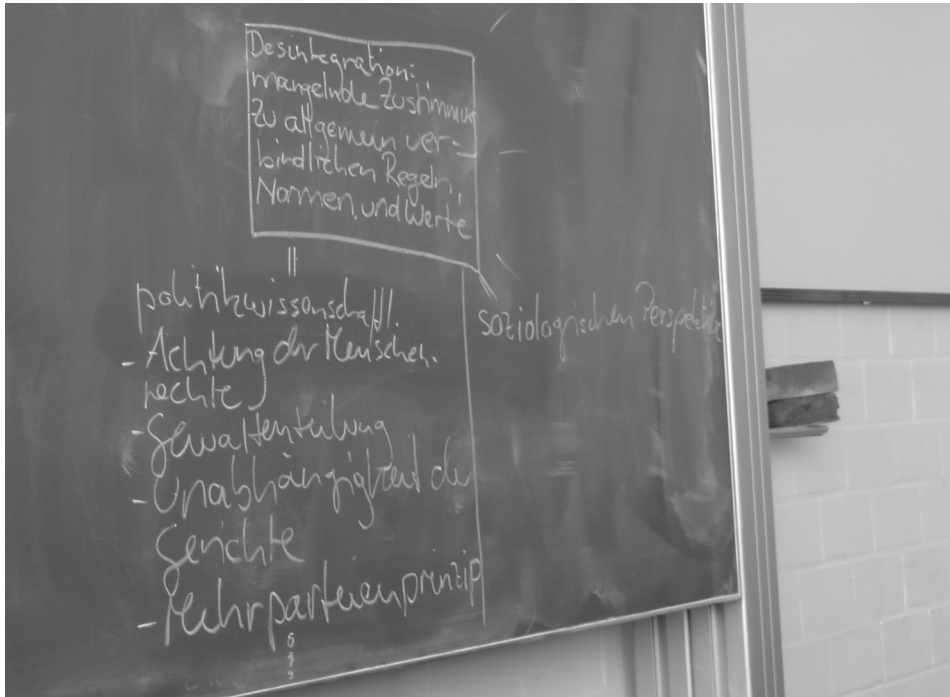 Desintegration:
mangelnde Zustimmung
zu allgemein ver-
bindlichen Regeln,
Normen und Werte
politikwissenschaftl.
- Achtung der Menschen-
rechte
- Gewaltenteilung
- Unabhängigkeit der
Gerichte
- Mehrparteienprinzip
soziologischen Perspektive